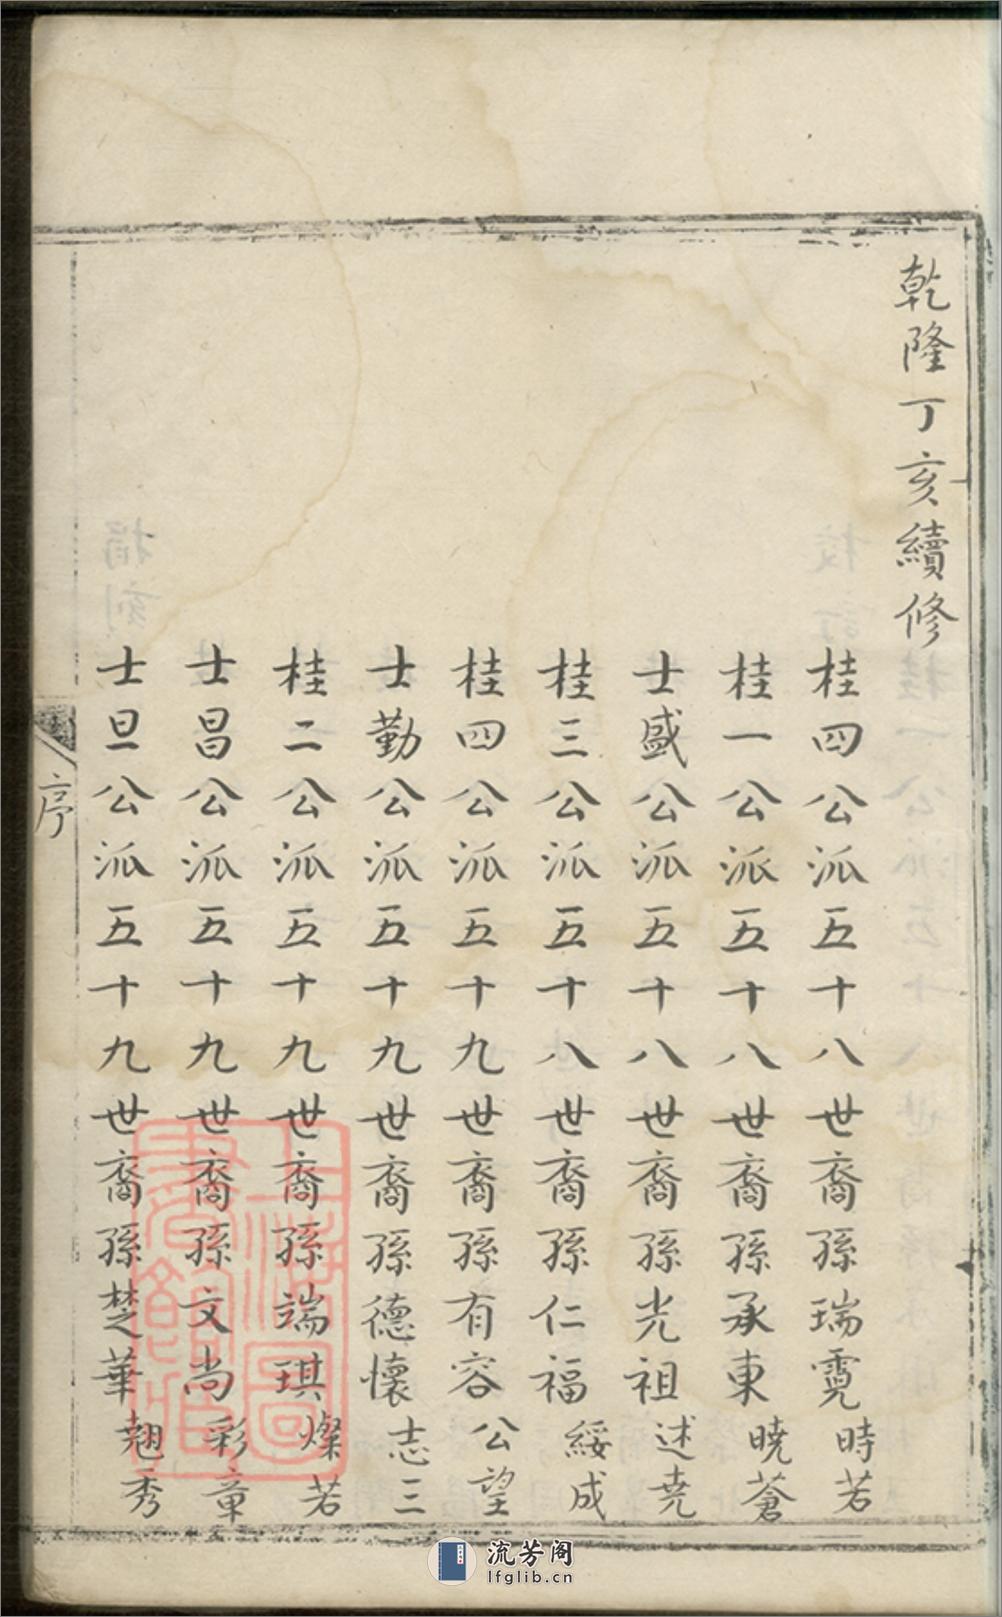 乾隆丁亥續修
桂四公派五十八世裔孫瑞霓時若
桂一公派五十八世裔孫承東曉蒼
士盛公派五十八世裔孫光祖述堯
桂三公派五十八世裔孫仁福綏成
桂四公派五十九世裔孫有容公望
士勤公派五十九世裔孫德懷志三
桂二公派五十九世裔孫端琪燦若
士昌公派五十九世裔孫文尚彩章
士旦公派五十九世裔孫楚華翹秀
序
上海圖書館藏
流芳阁
lfglib.cn